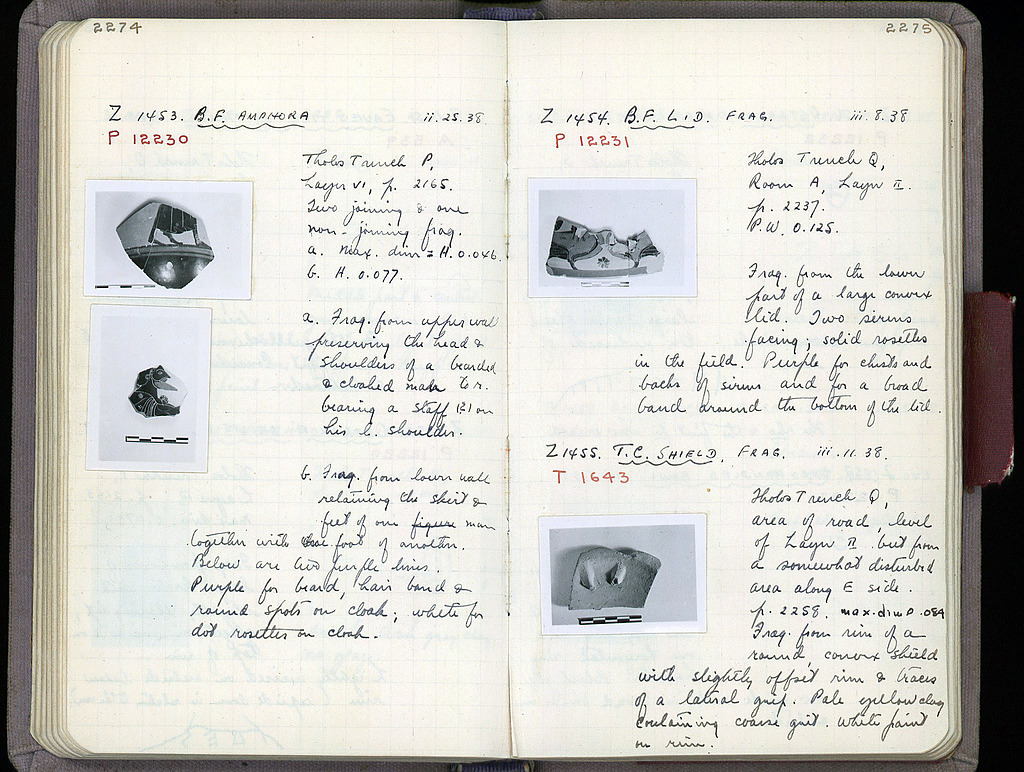 2274
Z 1453. B.F. AMPHORA ii.25.38
P 12230
Tholos Trench P,
Layer VI, p. 2165.
Two joining & one
non-joining frag.
a. Max. dim = H. 0.046.
b. H. 0.077.
a. Frag. from upper wall
preserving the head &
shoulders of a bearded
& cloaked man to r.
bearing a staff (?) on
his l. shoulder.
b. Frag. from lower wall
retaining the skirt &
feet of one figure man
together with foot of another.
Below are two purple lines.
Purple for beard, hair band &
round spots on cloak; white for
dot rosettes on cloak.
2275
Z 1454. B.F. LID. FRAG. iii.8.38
P 12231
Tholos Trench Q,
Room A, Layer II.
p. 2237.
P.W. 0.125.
Frag. from the lower
part of a large convex
lid. Two sirens
facing; solid rosettes
in the field. Purple for chests and
backs of sirens and for a broad
band around the bottom of the lid.
Z 1455. T.C. SHIELD, FRAG. iii.11.38.
T 1643
Tholos Trench Q,
area of road, level
of Layer II but from
a somewhat disturbed
area along E side.
p. 2258. max. dim 0.084
Frag. from rim of a
round, convex shield
with slightly offset rim & traces
of a lateral grip. Pale yellow clay
containing coarse grit. White paint
on rim.